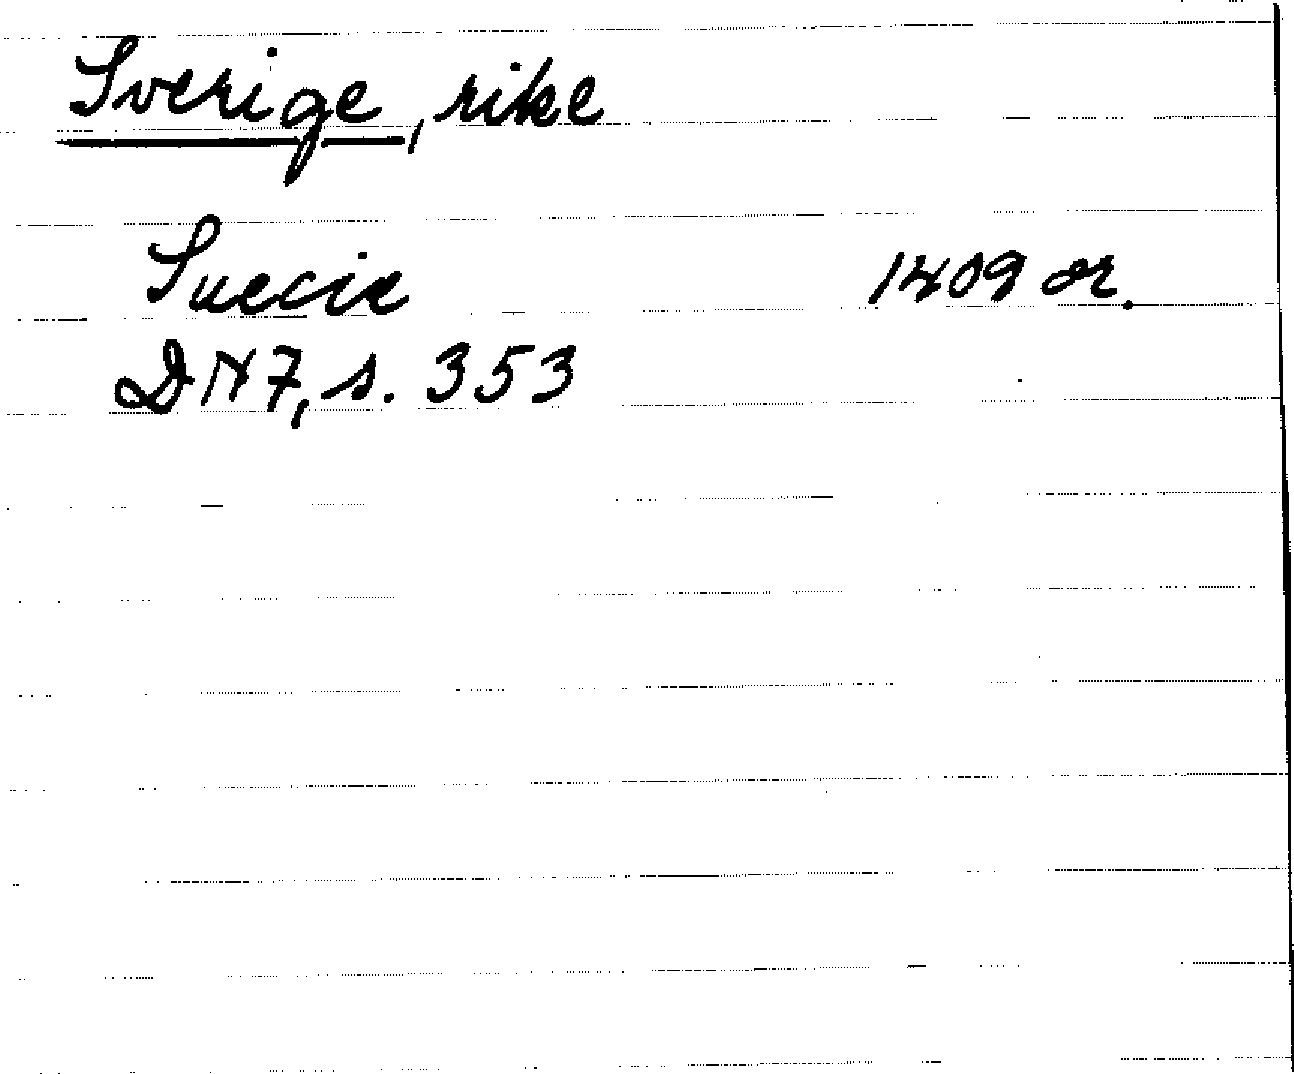 Sverige, rike
Suecie 1409 or.
DN 7, s. 353